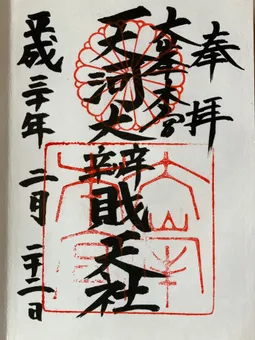 奉拝
大峯本宮
天河大辨財天社
平成三十年二月二十二日